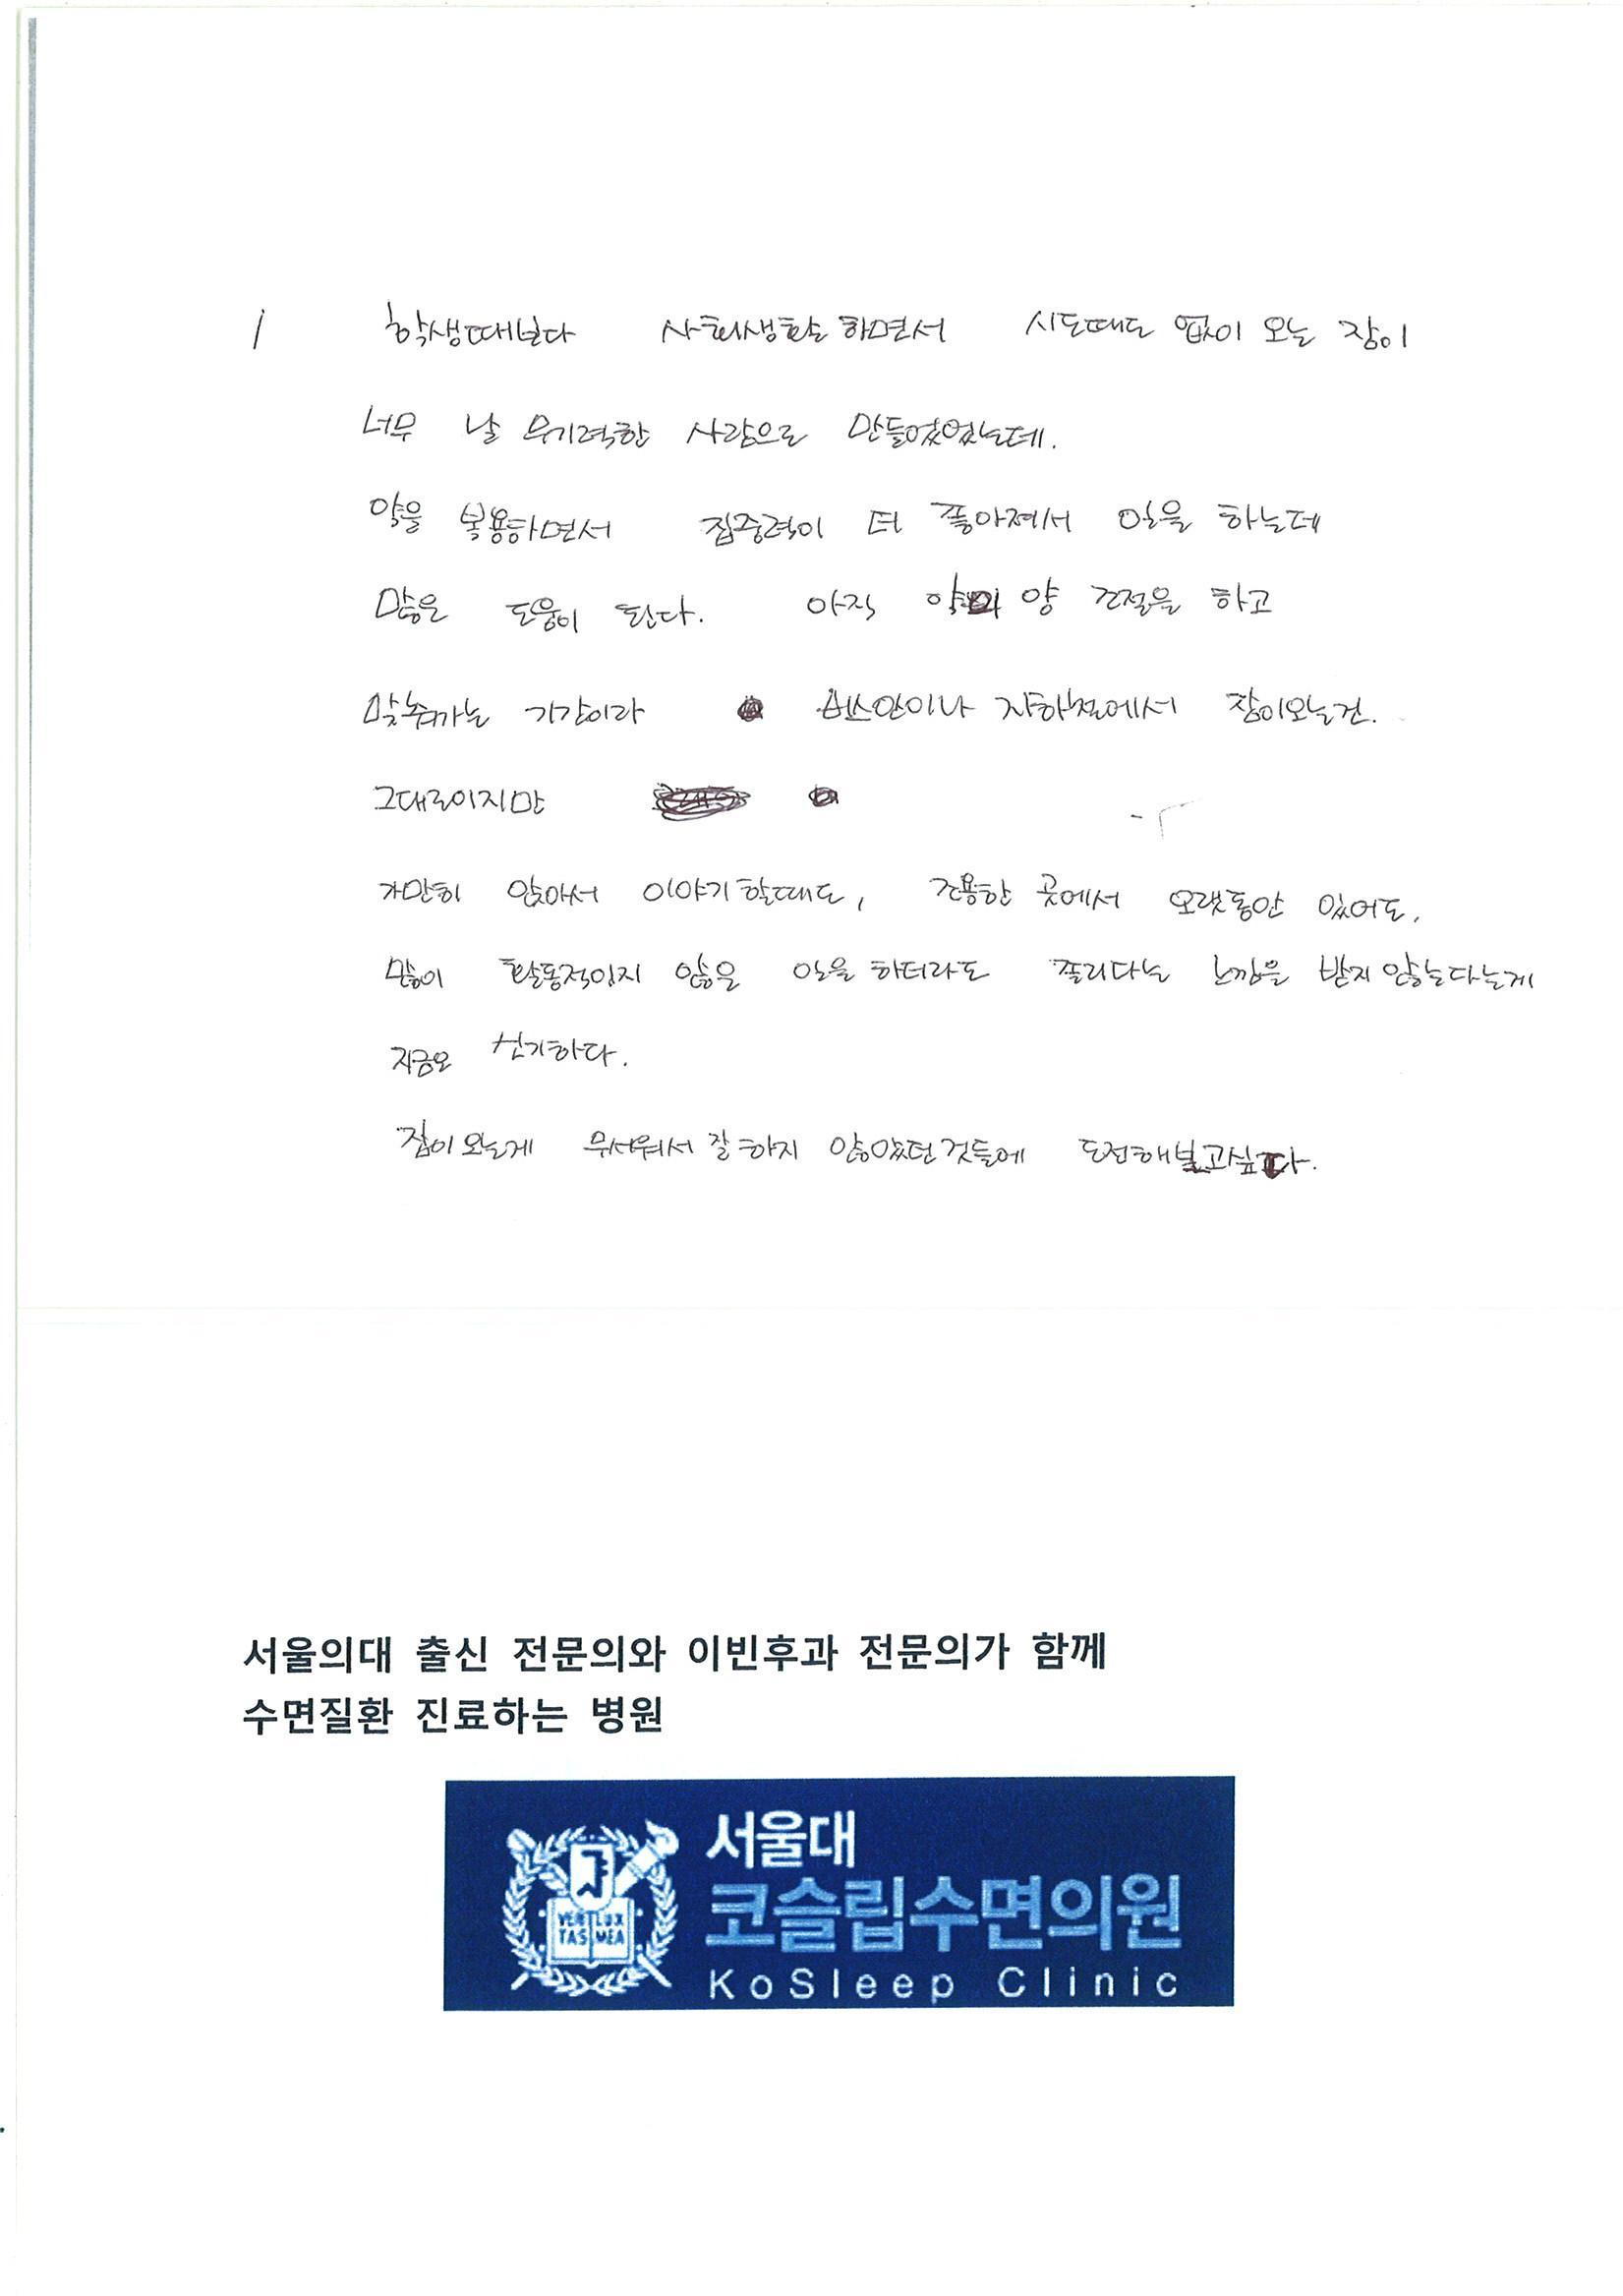 / 학생때보다 사회생활 하면서 시도때도 없이 오는 잠이
너무 날 무기력한 사람으로 만들었었는데.
약을 복용하면서 집중력이 더 좋아져서 일을 하는데
많은 도움이 된다. 아직 약의 양 조절을 하고
맞춰가는 기간이라 버스안이나 지하철에서 잠이오는건.
그대로이지만
가만히 앉아서 이야기 할때도, 조용한 곳에서 오랫동안 있어도,
많이 활동적이지 않은 일을 하더라도 졸리다는 느낌을 받지 않는다는게
지금도 신기하다.
잠이 오는게 무서워서 잘 하지 않았던 것들에 도전해보고싶다.
서울의대 출신 전문의와 이빈후과 전문의가 함께
수면질환 진료하는 병원
서울대
코슬립수면의원
KoSleep Clinic
VERI LUX
TAS MEA